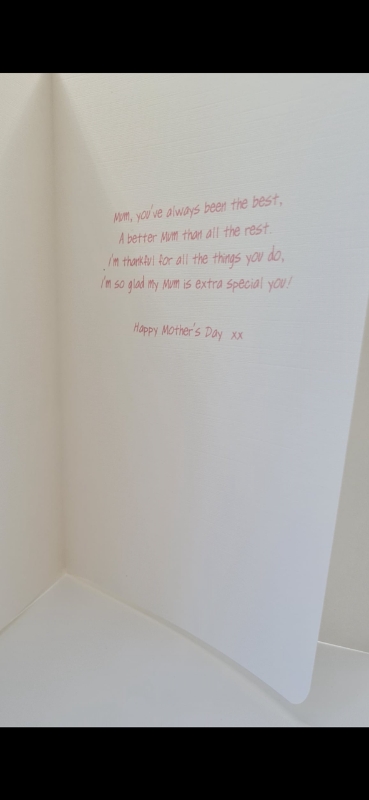 Mum, you've always been the best,
A better Mum than all the rest.
I'm thankful for all the things you do,
I'm so glad my Mum is extra special you!
Happy Mother's Day xx